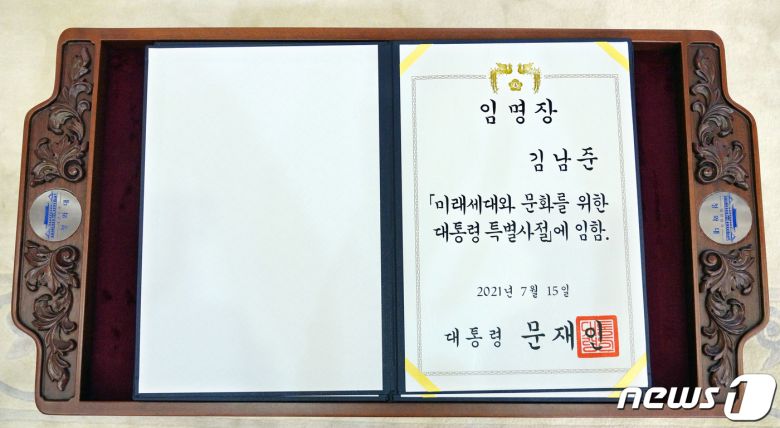 임명장
김남준
「미래세대와 문화를 위한
대통령 특별사절」에 임함.
2021년 7월 15일
대통령 문재인
청와대
청와대
news1